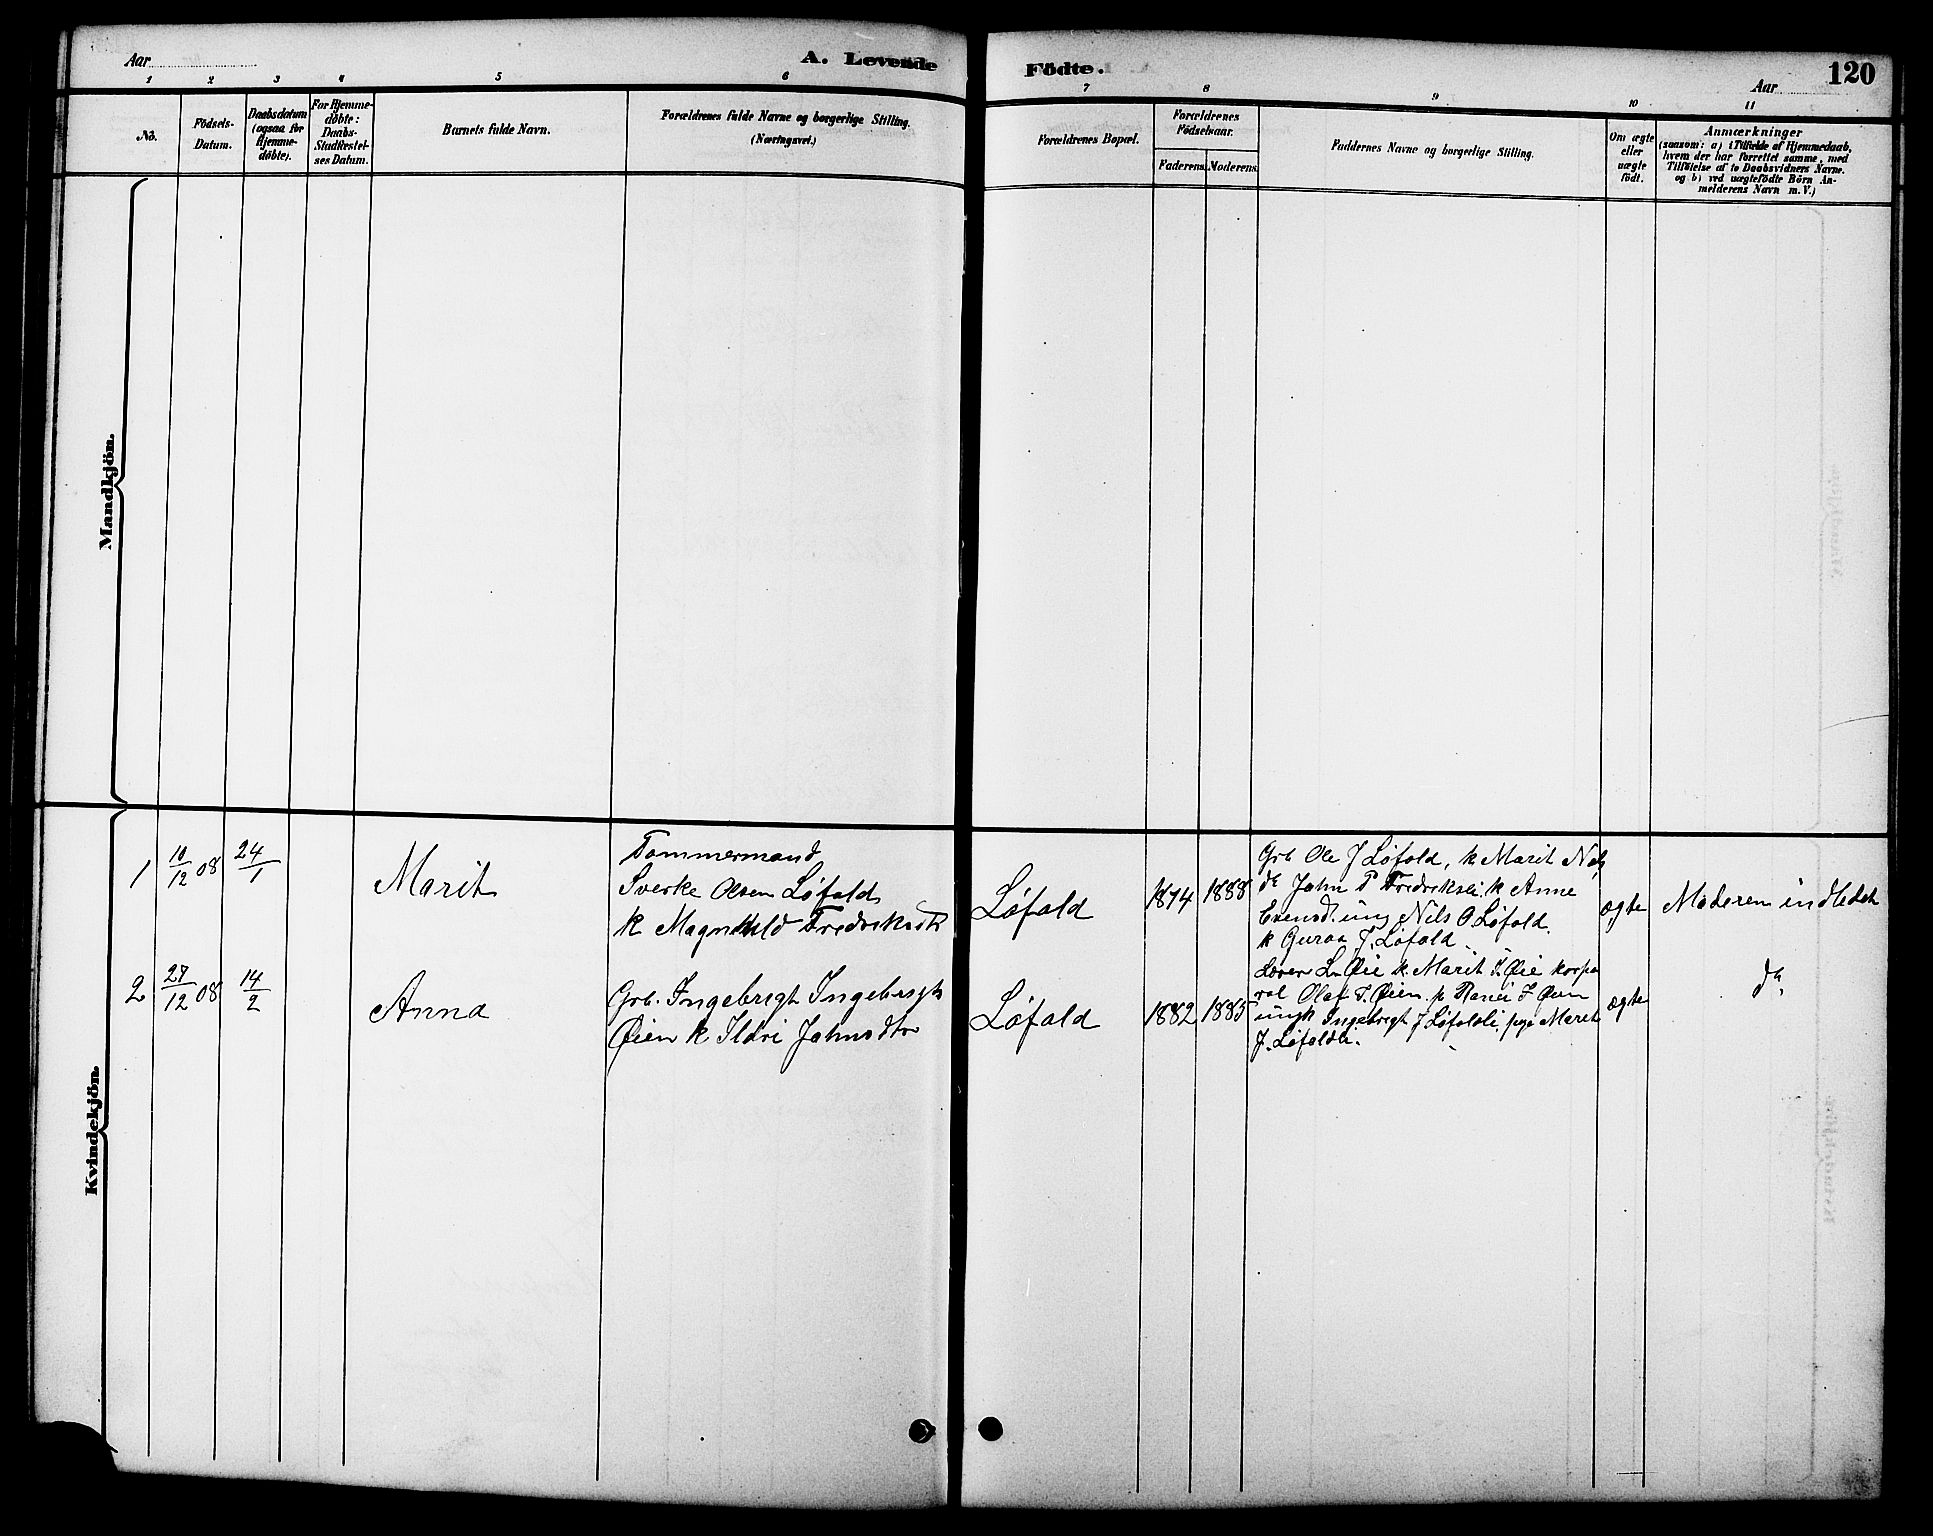 Aar
A. Levende
Födte.
Aar
120
1 2 3 4 5 6 7 8 9 10 11
No.
Födsels-
Datum.
Daabsdatum
(ogsaa for
Hjemme-
döbte).
For Hjemme-
döbte:
Daabs-
Stadfæstel-
ses Datum.
Barnets fulde Navn.
Forældrenes fulde Navne og borgerlige Stilling.
(Næringsvei.)
Forældrenes Bopæl.
Forældrenes
Födselsaar.
Faderens.
Moderens.
Faddernes Navne og borgerlige Stilling.
Om ægte
eller
uægte
födt.
Anmærkninger
(saasom: a) i Tilfælde af Hjemmedaab,
hvem der har forrettet samme, med
Tilföielse af to Daabsvidners Navne.
og b) ved uægtefödte Börn An-
melderens Navn m. V.)
Mandkjön.
Kvindekjön.
1
10/12 08
24/1
Marit
Tømmermand
Sverke Olsen Løfald
k Magnhild Fredriksdtr
Løfald
1874
1888
Grb Ole J Løfald, k Marit Nels
do John P Fredriksli. k Anne
Evensd. ung Nils O. Løfald.
k Guroa J. Løfald
ægte
Moderen indledet
2
27/12 08
14/2
Anna
Grb. Ingebrigt Ingebrigts
Øien k Ildri Johnsdtr
Løfald
1882
1885
Lærer L. Øie k. Marit I. Øie korpo
ral Olaf I. Øien. p Ranei I Øien
ungk Ingebrigt J Løfaldli. pige Marit
J. Løfaldli.
ægte
do